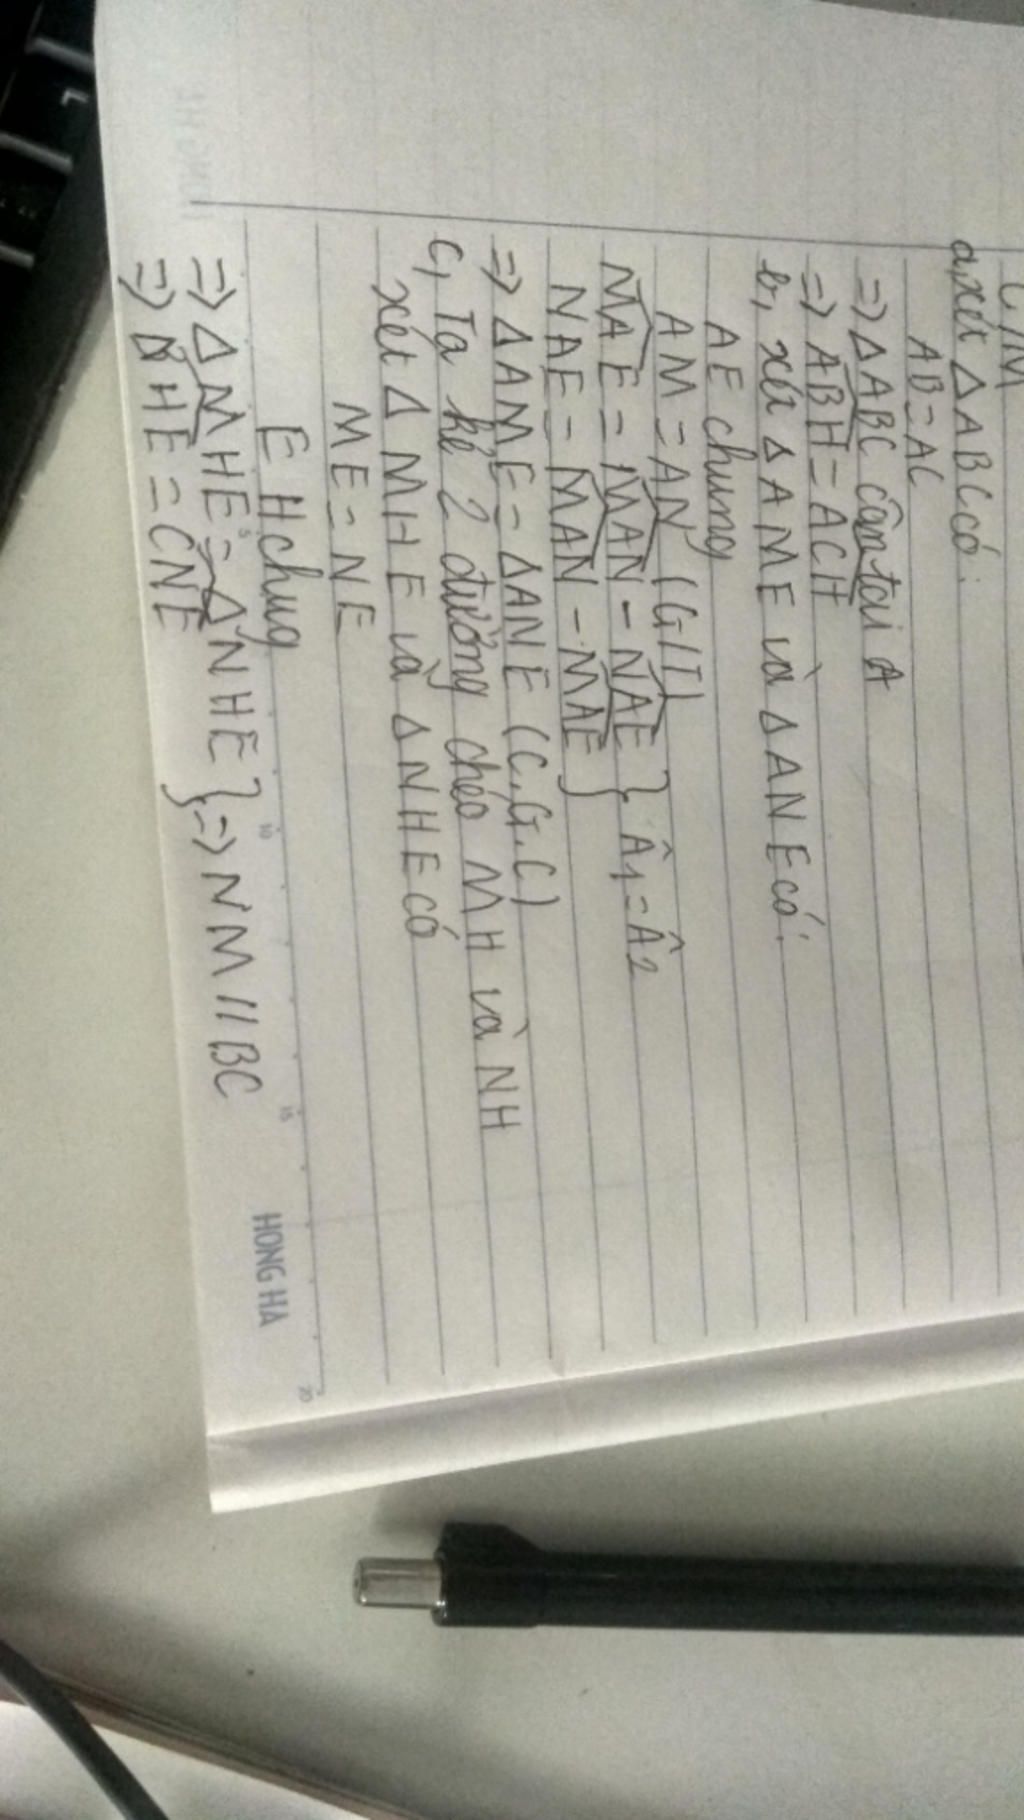 C/M
a, xét ΔABC có:
AB=AC
=> ΔABC cân tai A
=> ABH = ACH
b, xét ΔAME và ΔANE có:
AE chung
AM = AN (G/T)
MAE = MAN - NAE } Â1 = Â2
NAE = MAN - MAE }
=> ΔAME = ΔANE (C.G.C)
c, Ta kẻ 2 đường chéo MH và NH
xét Δ MHE và ΔNHE có
ME = NE
EH chug
=> ΔMHE = ΔNHE } => NM // BC
=> HE = CNE }
HONG HA